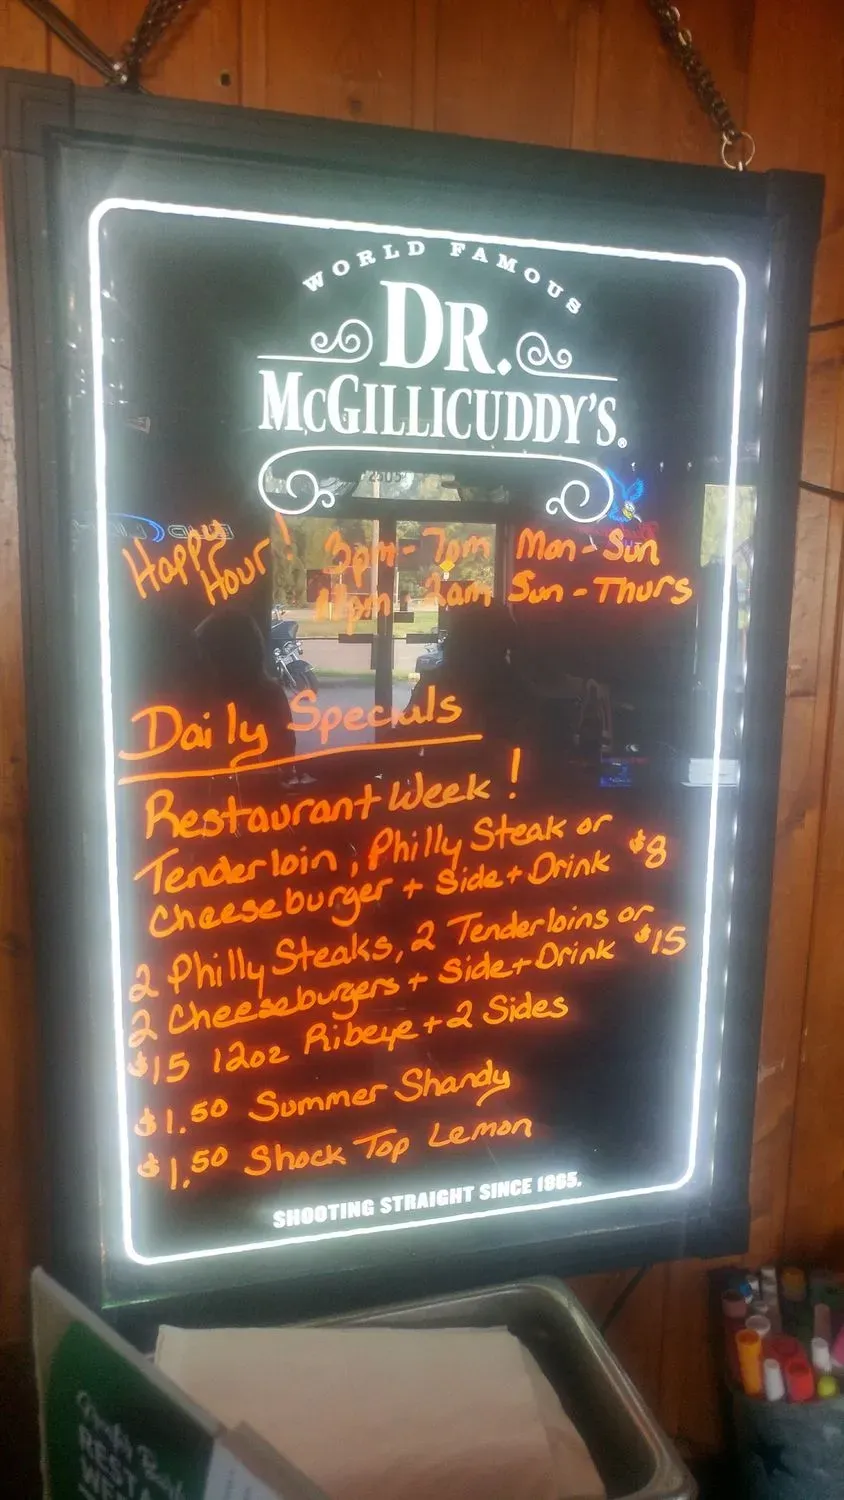 WORLD FAMOUS
DR.
MCGILLICUDDY'S®
Happy Hour! 3pm - 7pm Mon - Sun
- 2am Sun - Thurs
Daily Specials
Restaurant Week!
Tenderloin, Philly Steak or
Cheeseburger + Side + Drink $8
2 Philly Steaks, 2 Tenderloins or
2 Cheeseburgers + Side + Drink $15
$15 12oz Ribeye + 2 Sides
$1.50 Summer Shandy
$1.50 Shock Top Lemon
SHOOTING STRAIGHT SINCE 1865.